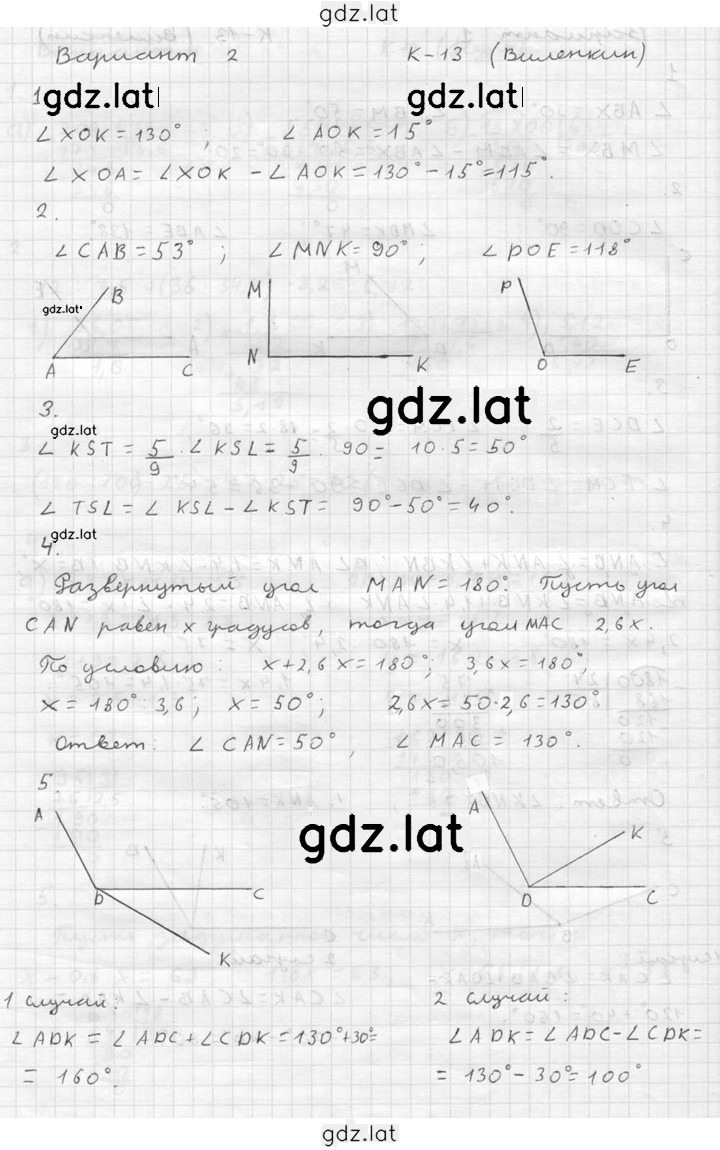 gdz.lat
Вариант 2 К-13 (Виленкин)
1 gdz.lat gdz.lat
∠XOK = 130° ; ∠AOK = 15°
∠XOA = ∠XOK - ∠AOK = 130° - 15° = 115°.
2.
∠CAB = 53° ; ∠MNK = 90° ; ∠POE = 118°
B M P
gdz.lat
A C N K O E
3. gdz.lat
gdz.lat
∠KST = 5/9 · ∠KSL = 5/9 · 90 = 10 · 5 = 50°
∠TSL = ∠KSL - ∠KST = 90° - 50° = 40°.
gdz.lat
4.
Развернутый угол MAN = 180°. Пусть угол
CAN равен x градусов, тогда угол MAC 2,6x.
По условию : x + 2,6x = 180° ; 3,6x = 180° ;
x = 180° : 3,6 ; x = 50° ; 2,6x = 50 · 2,6 = 130°
Ответ : ∠CAN = 50° , ∠MAC = 130°.
5.
A A
gdz.lat K
D C D C
K
1 случай : 2 случай :
∠ADK = ∠ADC + ∠CDK = 130° + 30° = ∠ADK = ∠ADC - ∠CDK =
= 160°. = 130° - 30° = 100°
gdz.lat